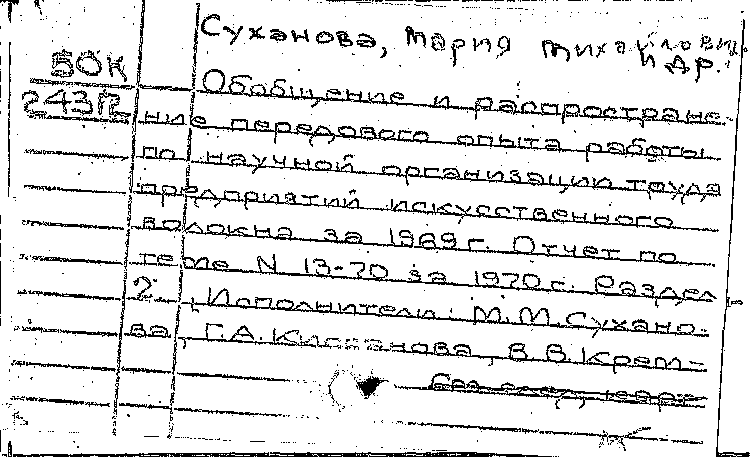 Суханова, Мария Михайлович.
и др.
50К
243П
Обобщение и распростране-
ние передового опыта работы
по научной организации труда
предприятий искусственного
волокна за 1969 г. Отчет по
теме N 13-70 за 1970 г. Раздел
2. Исполнители: М.М. Сухано-
ва, Г.А. Кисанова, В.В. Крем-
См. след. карт